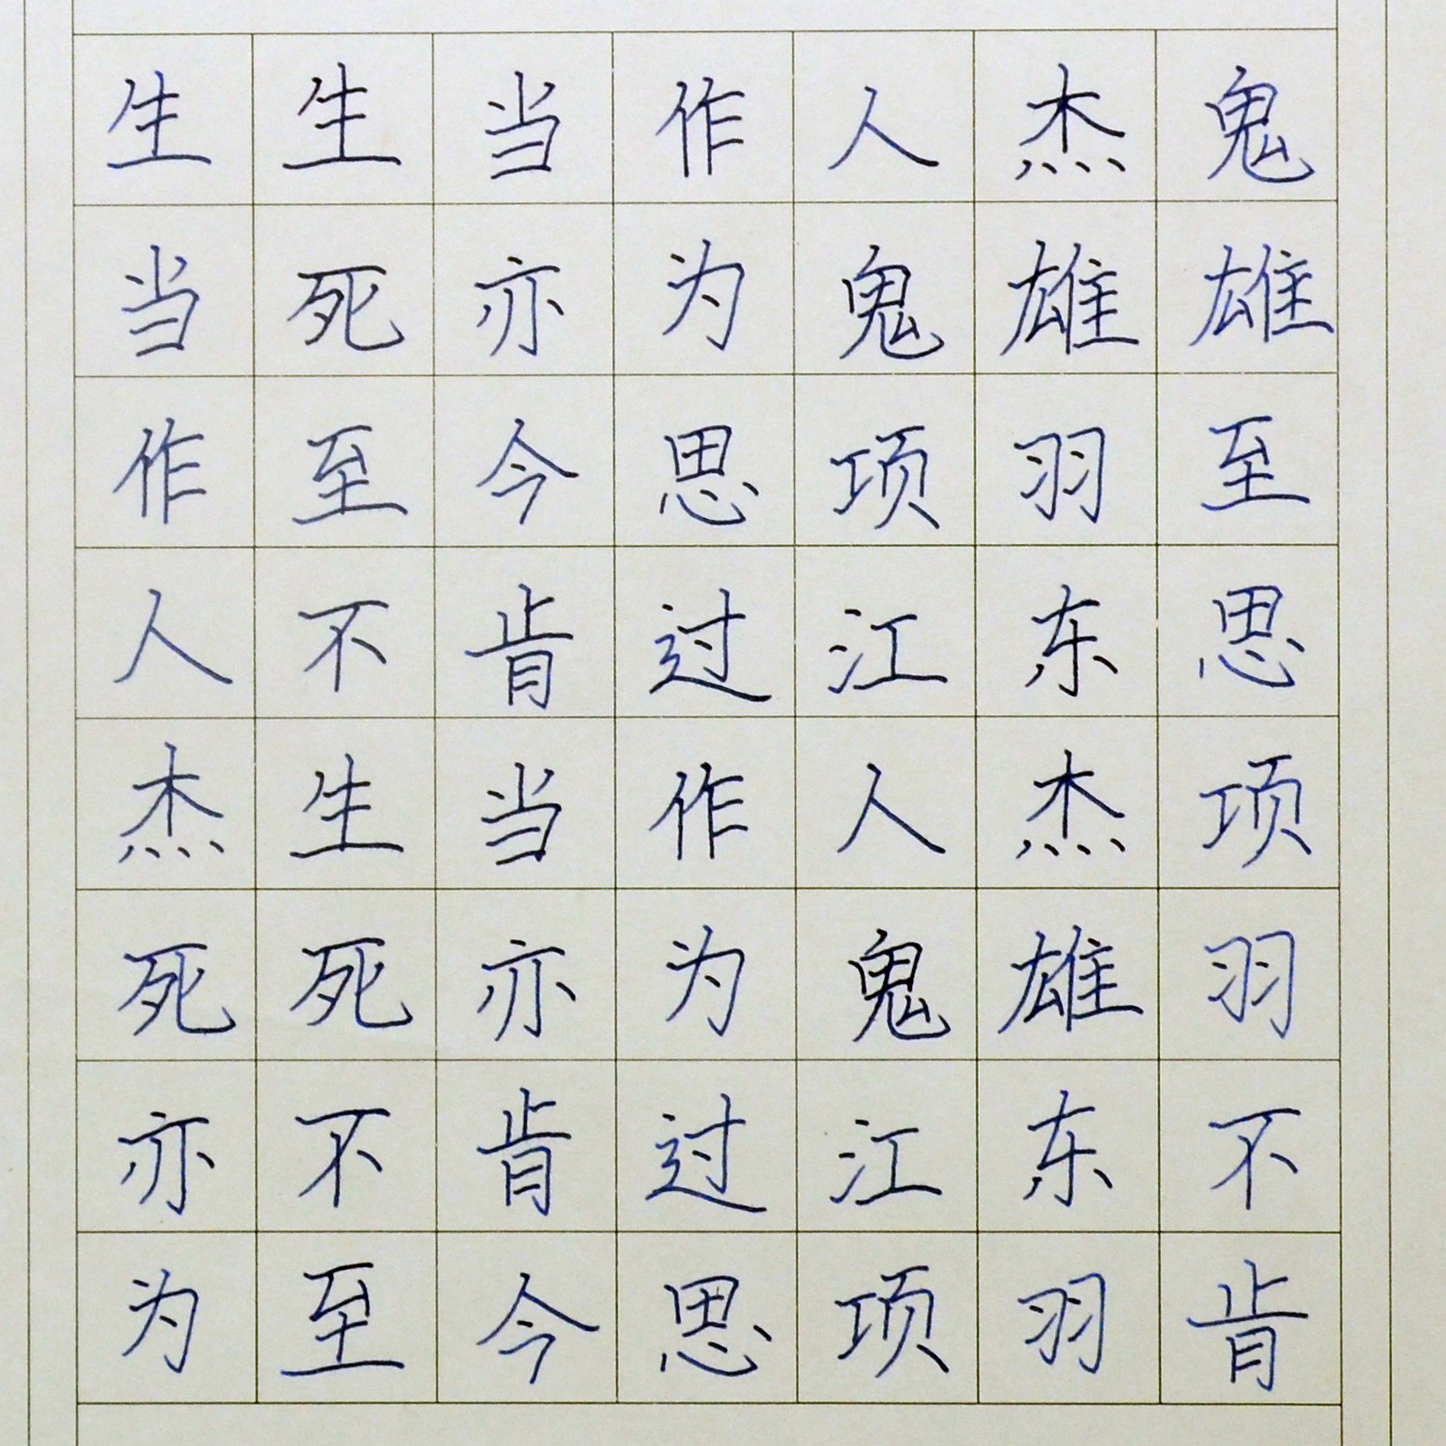 生生当作人杰鬼
当死亦为鬼雄雄
作至今思项羽至
人不肯过江东思
杰生当作人杰项
死死亦为鬼雄羽
亦不肯过江东不
为至今思项羽肯